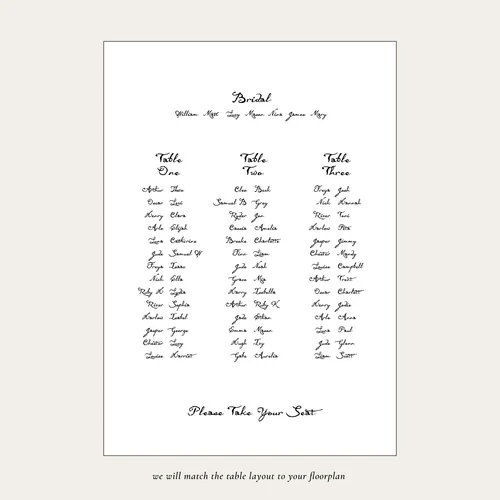 Bridal
William Matt Lucy Mason Nina James Mary
Table One
Arthur Thea
Oscar Levi
Henry Clara
Arlo Elijah
Luca Catherine
Jude Samuel W
Freya Isaac
Noah Ella
Ruby H Lydia
River Sophia
Harlow Isabel
Jasper George
Chester Lucy
Louise Harriet
Table Two
Cleo Beck
Samuel B Grey
Ryder Jan
Cassie Amelia
Brooke Charlotte
Finn Liam
Jude Noah
Grace Mia
Harry Isabella
Arthur Ruby K
Jade Ethan
Emma Mason
Hugh Ivy
Gabe Aurelia
Table Three
Freya Jack
Nick Hannah
River Tori
Harlow Pete
Jasper Jimmy
Chester Mandy
Louise Campbell
Arthur Trent
Oscar Charlotte
Henry Jade
Arlo Anna
Luca Paul
Jude Glenn
Liam Scott
Please Take Your Seat
we will match the table layout to your floorplan